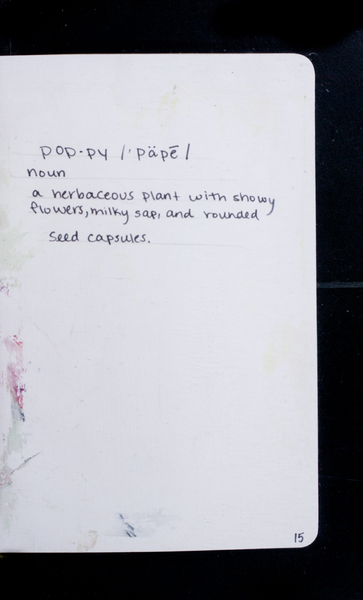 pop·py /ˈpäpē/
noun
a herbaceous plant with showy
flowers, milky sap, and rounded
seed capsules.
15